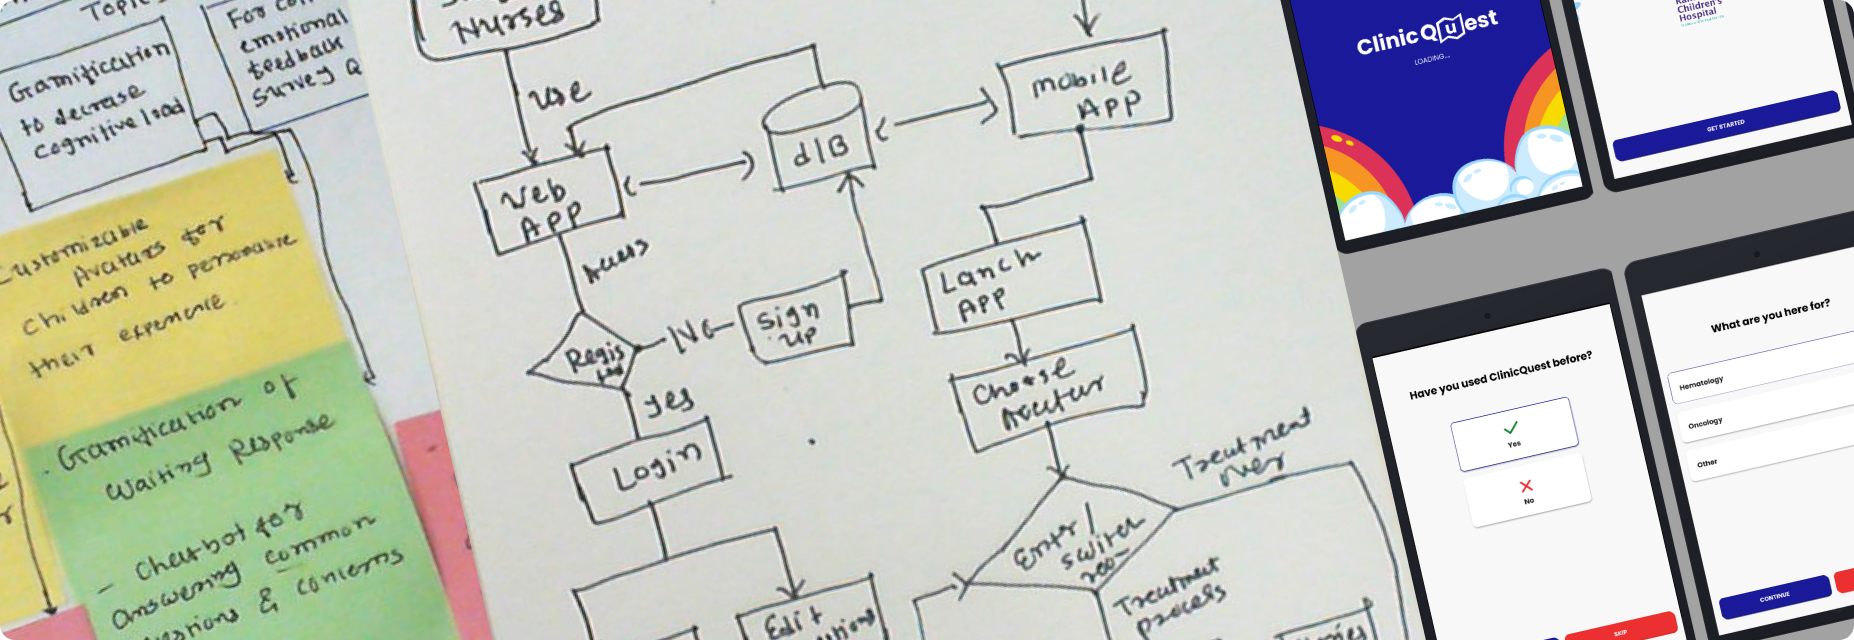 Topic
Gamification
to decrease
cognitive load
For con
emotional
feedback
Survey Q
Customizable
Avatars for
Children to personalise
their experience.
Gamification of
Waiting Response
- Chatbot for
answering common
& concerns
Nurses
Use
Web
APP
d/B
mobile
APP
Access
Regis
No
Sign
UP
yes
Login
Edit
Lanch
APP
Choose
Avatar
Enter /
switch
Treatment
over
Treatment
process
ClinicQuest
LOADING...
Children's
Hospital
GET STARTED
Have you used ClinicQuest before?
Yes
No
SKIP
What are you here for?
Hematology
Oncology
Other
CONTINUE